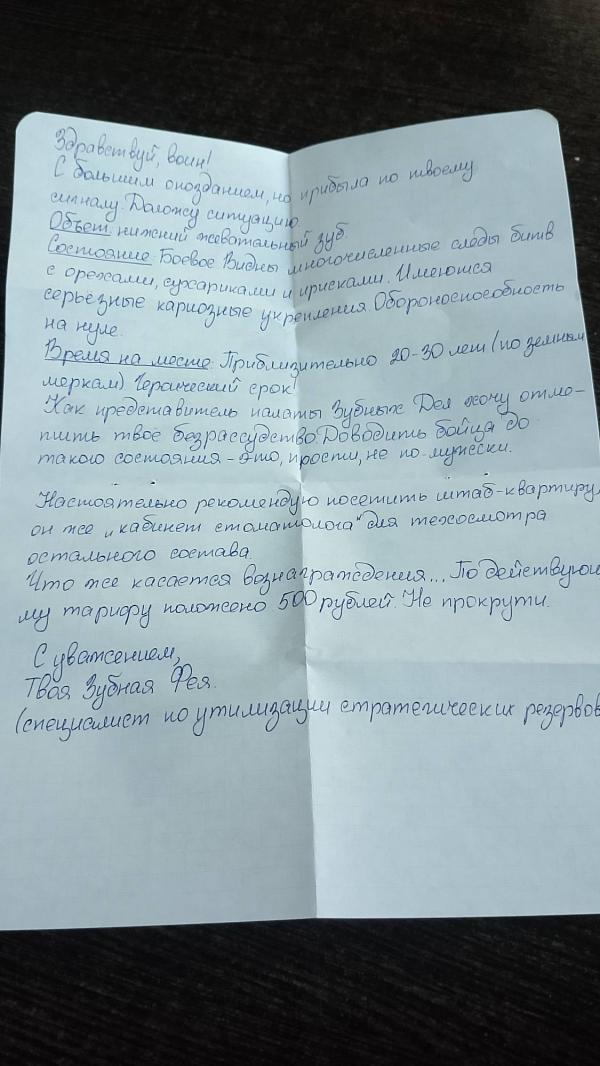 Здравствуй, воин!
С большим опозданием, но прибыла по твоему
сигналу. Доложу ситуацию.
Объект: нижний жевательный зуб.
Состояние: Боевое. Видны многочисленные следы битв
с орехами, сухариками и ирисками. Имеются
серьёзные кариозные укрепления. Обороноспособность
на нуле.
Время на месте: Приблизительно 20-30 лет (по земным
меркам) Героический срок!
Как представитель палаты Зубных Дел хочу отмо-
пить твоё безрассудство. Доводить бойца до
такого состояния - это, прости, не по-мужески.
Настоятельно рекомендую посетить штаб-квартиру,
он же „кабинет стоматолога" для техосмотра
остального состава.
Что же касается вознаграждения... По действующе-
му тарифу положено 500 рублей. Не прокрути.
С уважением,
Твоя Зубная Фея.
(специалист по утилизации стратегических резервов